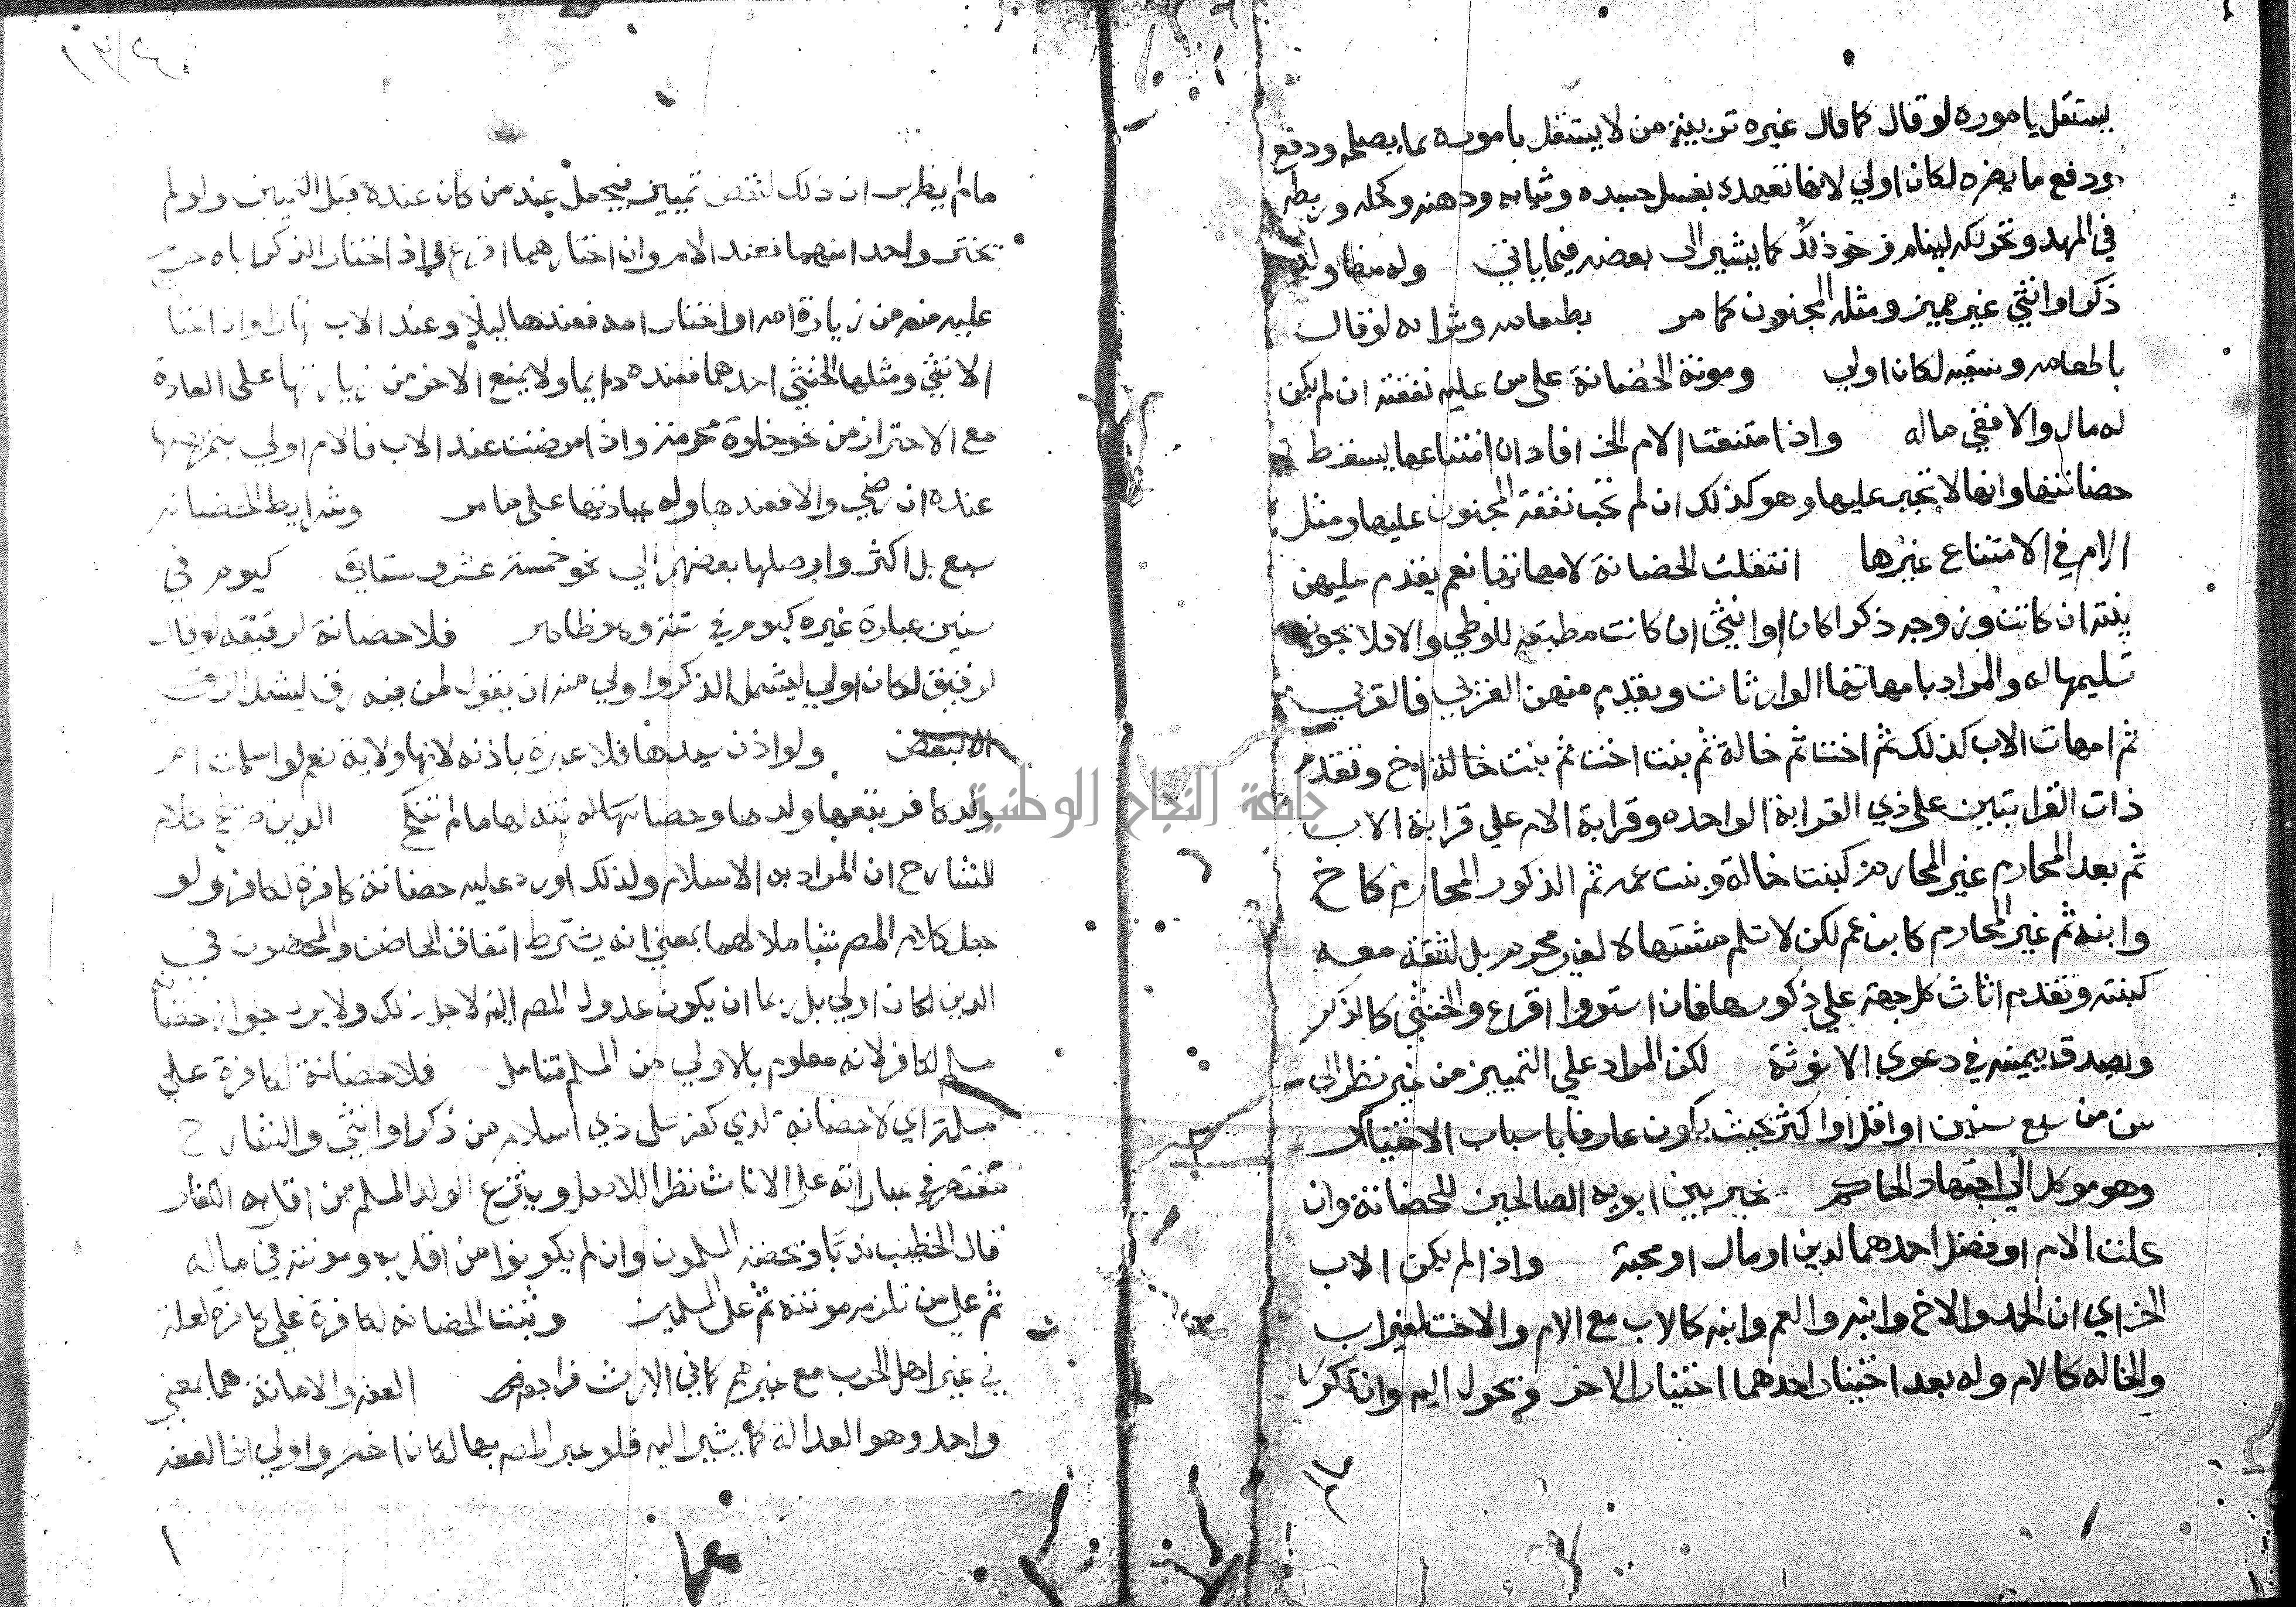 يستقل باموره لو قال كما قال غيره تربية من لا يستقل باموره بما يصلحه ودفع
بردفع ما يضره لكان اولي لانها تعهده بغسل جسده وثيابه ودهنه وكحله وربطه
في المهد وتحريكه لينام ونحو ذلك كما يشير الى بعضه فيما ياتي وله
ذكرا وانثي غير مميز ومثله المجنون كما مر بطعامه وشرابه لو قال
باطعامه وسقيه لكان اولي ومونة الحضانة على من عليه نفقته ان لم يكن
له مال والا ففي ماله واذا امتنعت الام الخ افاد ان امتناعها يسقط
حضانتها وانها لا تجبر عليها وهو كذلك ان لم تجب نفقة المجنون عليها ومثل
الام في الامتناع غيرها انتقلت الحضانة لامهاتها نعم يقدم عليهن
بنته ان كانت وزوجه ذكرا كان او انثي ان كانت مطيقة للوطي والا فلا يجوز
تسليمها له والمراد بامهاتها الوارثات ويقدم منهن القربي فالقربي
ثم امهات الاب كذلك ثم اخت ثم خالة ثم بنت اخت ثم بنت خالة اخ وتقدم
ذات القرابتين على ذي القرابة الواحده وقرابة الام علي قرابة الاب
ثم بعد المحارم غير المحارم كبنت خالة وبنت عمه ثم الذكور المحارم كاخ
وابنه ثم غير المحارم كابن عم لكن لا تسلم مشتهاة لغير محرم بل لثقة معه
كبنته وتقدم اناث كل جهة علي ذكورها فان استووا اقرع والخنثي كالذكر
ويصدق بيمينه في دعوي الانوثة لكن المراد علي التمييز من غير نظر الى
سن من سبع سنين او اقل او اكثر بحيث يكون عارفا باسباب الاختيار
وهو موكل الي اجتهاد الحاكم خير بين ابويه الصالحين للحضانة وان
علت الام او فضل احدهما لدين او مال او محبة واذا لم يكن الاب
الخ اي ان الجد والاخ وابنه والعم وابنه كالاب مع الام والاخت لغير اب
والخاله كالام وله بعد اختيار احدهما اختيار الاخر وتحول اليه وان تكرر
ما لم يظهر ان ذلك لنقص تمييز فيجعل عند من كان عنده قبل التمييز ولو لم
يختر واحدا منهما فعند الام وان اختارهما اقرع واذا اختار الذكر اباه حرم
عليه منعه من زيارة امه او اختار امه فعندها ليلا وعند الاب نهارا واذا اختا
الانثي ومثلها الخنثي احدهما فعنده دايما ولا يمنع الاخر من زيارتها على العادة
مع الاحتراز من نحو خلوة محرمة واذا مرضت عند الاب فالام اولي بتمريضها
عنده ان رضي والا فعندها وله عيادتها على ما مر وشرايط الحضانة
سبع بل اكثر واوصلها بعضهم الي نحو خمسة عشر وستاتي كيوم في
سنين عبارة غيره كيوم في سنة وهو ظاهر فلا حضانة لرقيقه لو قال
لرقيق لكان اولي ليشمل الذكر واولي منه ان يقول لمن فيه رق ليشمل الرق
المبعض ولو اذن سيدها فلا عبرة باذنه لانها ولاية نعم لو اسلمت ام
ولد كافر يتبعها ولدها وحضانتها له لها ما لم تنكح الدين كلام
الشارح ان المراد به الاسلام ولذلك اورد عليه حضانة كافرة لكافر ولو
جعل كلام المصم شاملا لهما بمعني انه يشترط اتفاق الحاضن والمحضون في
الدين لكان اولي بل ربما ان يكون عدول المصم اليه لاجل ذلك ولا يرد جواز حضانة
مسلم لكافر لانه معلوم بالاولي من المسلم فتامل فلا حضانة لكافرة علي
مسلم اي لا حضانة لذي كفر على ذي اسلام من ذكر او انثي والشارح
تقتصر في عباراته على الاناث نظرا للاصل وينزع الولد المسلم من اقاربه الكفار
قال الخطيب ندبا وتحضنه المسلمون وان لم يكونوا من اقاربه ومونته في ماله
ثم على من تلزمه مونته ثم على المسلمين وتثبت الحضانة لكافرة علي كافر لعله
في غير اهل الحرب مع غيرهم كما في الارث فراجعه العفة والامانة هما بمعني
واحد وهو العدالة كما يشير اليه فلو عبر المصم بها لكان اخصر واولي اذ العفة
جامعة النجاح الوطنية